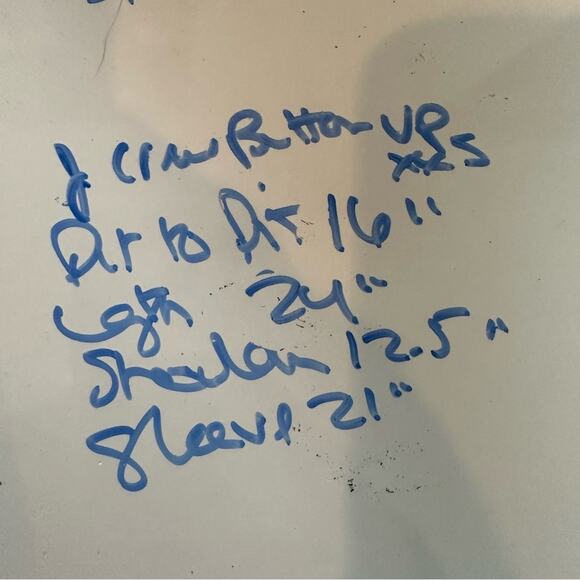 J Crew Button UP
XXS
Pit to Pit 16"
Length 24"
Shoulder 12.5"
Sleeve 21"